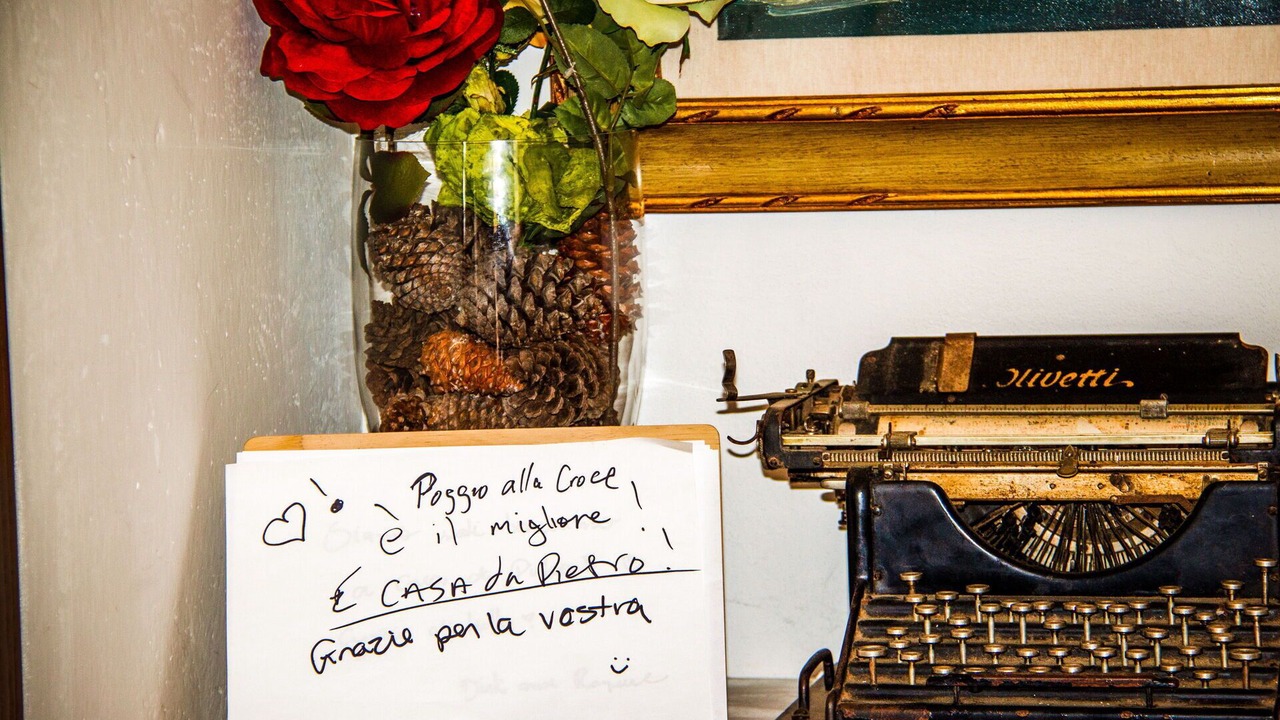 Poggio alla Croce
è il migliore !
E CASA da Pietro !
Grazie per la vostra
Olivetti